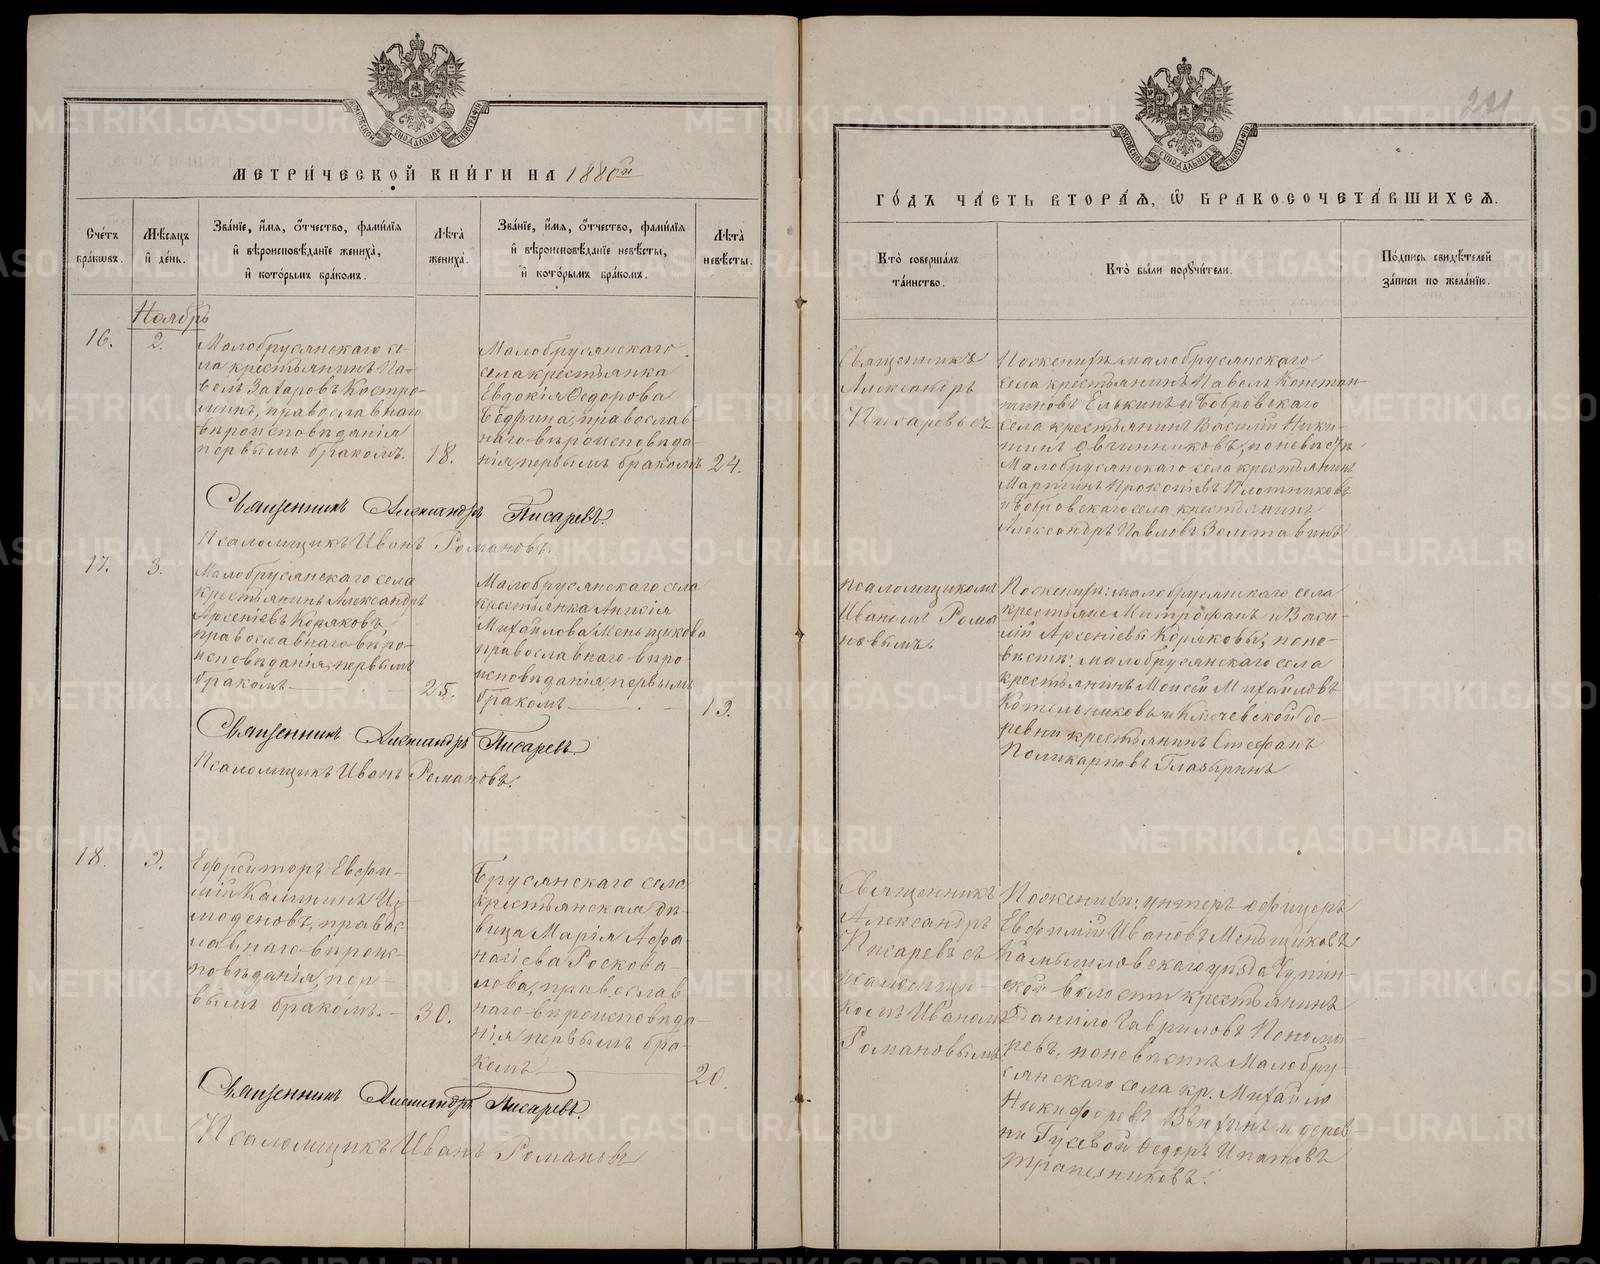 МЕТРИ́ЧЕСКОЙ КНИ́ГИ НА 1880й
Сче́тъ бра́ковъ.
Мѣ́сяцъ и҆ де́нь.
Зва́нїе, и҆́мя, ѻ҆́тчество, фами́лїя и҆ вѣроисповѣ́данїе жениха̀, и҆ кото́рымъ бра́комъ.
Лѣ́та жениха̀.
Зва́нїе, и҆́мя, ѻ҆́тчество, фами́лїя и҆ вѣроисповѣ́данїе невѣ́сты, и҆ кото́рымъ бра́комъ.
Лѣ́та невѣ́сты.
Ноябрь
16.
2.
Малобрусянскаго се-
ла крестьянинъ Па-
велъ Захаровъ Костро-
минъ, православнаго
вѣроисповѣданія
первымъ бракомъ.
18.
Малобрусянскаго
села крестьянка
Евдокія Ѳедорова
православ
наго вѣроисповѣда-
нія, первымъ бракомъ
24.
Священникъ Александръ Писаревъ.
Псаломщикъ Иванъ Романовъ.
17.
3.
Малобрусянскаго села
крестьянинъ Александръ
Арсеніевъ Коряковъ
православнаго вѣро-
исповѣданія, первымъ
бракомъ
25.
Малобрусянскаго села
крестьянка Анисія
Михайлова Меньщикова
православнаго вѣро-
исповѣданія, первымъ
бракомъ
19.
Священникъ Александръ Писаревъ
Псаломщикъ Иванъ Романовъ.
18.
9.
Ефрейторъ Евфи-
мій Калининъ Из-
моденовъ, правос-
лавнаго вѣроис-
повѣданія, пер-
вымъ бракомъ.
30.
Брусянскаго села
крестьянская дѣ-
вица Марія Аѳа-
насіева Роскова-
лова, православ
наго вѣроисповѣда-
нія первымъ бра-
комъ
20.
Священникъ Александръ Писаревъ.
Псаломщикъ Иванъ Романовъ
ГО́ДЪ ЧА́СТЬ ВТОРА́Я, Ѡ҆ БРАКОСОЧЕТА́ВШИХСЯ.
Кто̀ соверша́лъ та́инство.
Кто̀ бы́ли порꙋчи́тели.
По́дпись свидѣ́телей за́писи по жела́нїю.
Священникъ
Александръ
Писаревъ съ
По женихѣ малобрусянскаго
села крестьянинъ Павелъ Констан-
тиновъ Елькинъ и Бобровскаго
села крестьянинъ Василій Ники-
тинъ Овчинниковъ; по невѣстѣ
Малобрусянскаго села крестьянинъ
Прокопіевъ Плотниковъ
и Бобровскаго села крестьянинъ
Александръ Павловъ
псаломщикомъ
Иваномъ Рома
новымъ.
По женихѣ: малобрусянскаго села
крестьяне Митрофанъ и Васи-
лій Арсеніевы Коряковы, по не-
вѣстѣ: малобрусянскаго села
крестьянинъ Моисей Михайловъ
Котельниковъ и Ключевской де-
ревни крестьянинъ Стефанъ
Поликарповъ Глазыринъ
Священникъ
Александръ
Писаревъ съ
псаломщи-
комъ Иваномъ
Романовымъ
По женихѣ: унтеръ офицеръ
Евфимій Ивановъ Меньщиковъ
Камышловскаго уѣзда
ской волости крестьянинъ
Данило Гавриловъ Понома-
ревъ, по невѣстѣ Малобру-
сянскаго села кр. Михайло
Никифоровъ Вяткинъ и дерев
ни Гусевой Ѳедоръ Ипатовъ
Трапезниковъ.